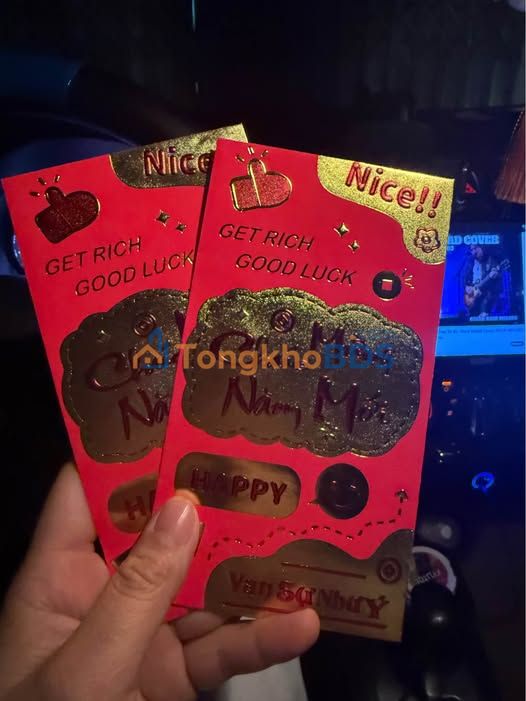 Nice
GET RICH
GOOD LUCK
Nice!!
GET RICH
GOOD LUCK
Năm Mới
HAPPY
Vạn Sự Như Ý
TongkhoBDS